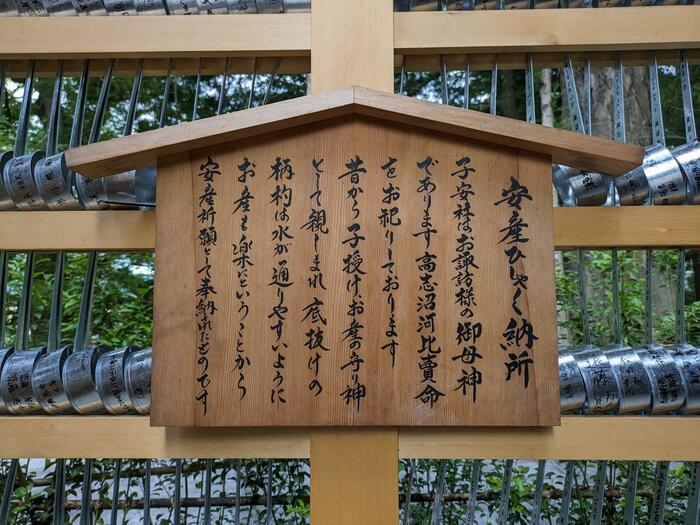 安産ひしゃく納所
子安社はお諏訪様の御母神
であります高志沼河比賣命
をお祀りしております
昔から子授け、お産の守り神
として親しまれ底抜けの
柄杓は水が通りやすいように
お産も楽にということから
安産祈願として奉納されたものです